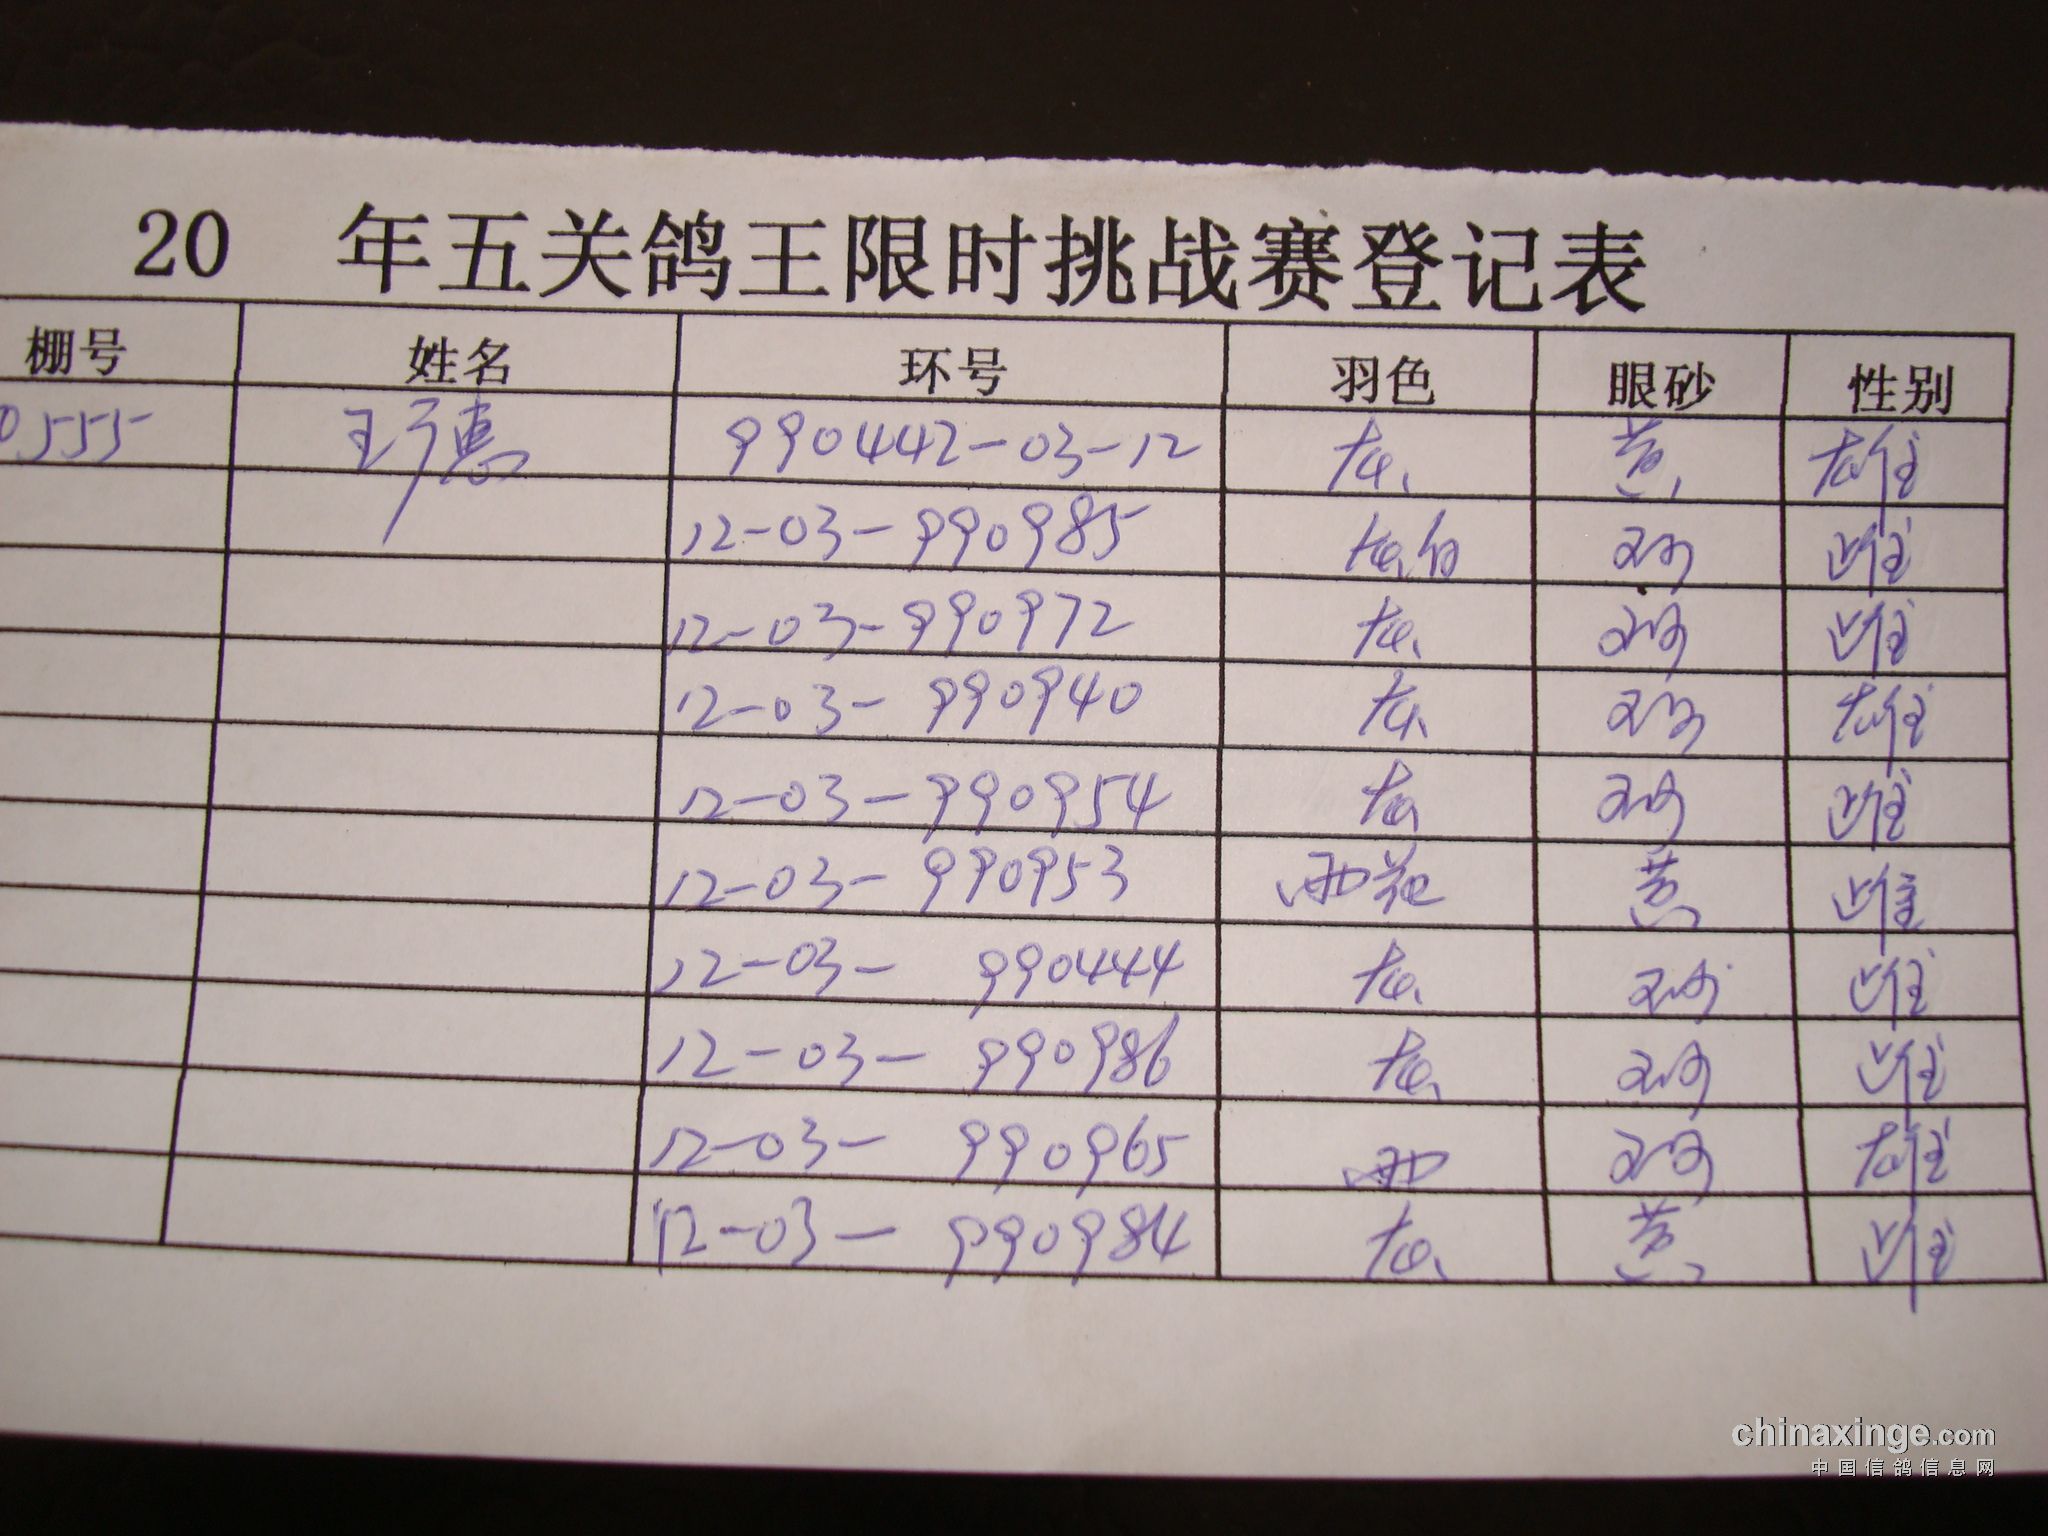 20 年五关鸽王限时挑战赛登记表
棚号 姓名 环号 羽色 眼砂 性别
0555 990442-03-12 灰 黄 雄
12-03-990985 砂 雌
12-03-990972 灰 砂 雌
12-03-990940 灰 砂 雄
12-03-990954 灰 砂 雌
12-03-990953 雨花 黄 雌
12-03-990444 灰 砂 雌
12-03-990986 灰 砂 雌
12-03-990965 雨 砂 雄
12-03-990984 灰 黄 雌
chinaxinge.com
中国信鸽信息网